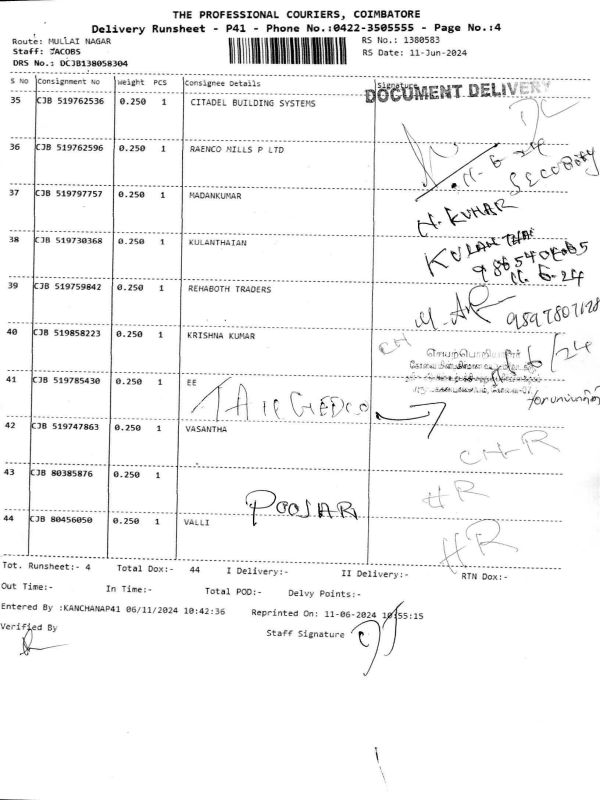 THE PROFESSIONAL COURIERS, COIMBATORE
Delivery Runsheet - P41 - Phone No.:0422-3505555 - Page No.:4
Route: MULLAI NAGAR RS No.: 1380583
Staff: JACOBS RS Date: 11-Jun-2024
DRS No.: DCJB138058304
S No Consignment No Weight PCS Consignee Details Signature
DOCUMENT DELIVERY
35 CJB 519762536 0.250 1 CITADEL BUILDING SYSTEMS
36 CJB 519762596 0.250 1 RAENCO MILLS P LTD
11-6-24
SECURITY
37 CJB 519797757 0.250 1 MADANKUMAR
N. KUMAR
38 CJB 519730368 0.250 1 KULANTHAIAN
KULANTHAI
11-6-24
39 CJB 519759842 0.250 1 REHABOTH TRADERS
9597807128
40 CJB 519858223 0.250 1 KRISHNA KUMAR
CH
செயற்பொறியாளர்
41 CJB 519785430 0.250 1 EE
TANGEDCO
42 CJB 519747863 0.250 1 VASANTHA
CH-R
43 CJB 80385876 0.250 1
POOJAR
HR
44 CJB 80456050 0.250 1 VALLI
HR
Tot. Runsheet:- 4 Total Dox:- 44 I Delivery:- II Delivery:- RTN Dox:-
Out Time:- In Time:- Total POD:- Delvy Points:-
Entered By :KANCHANAP41 06/11/2024 10:42:36 Reprinted On: 11-06-2024 10:55:15
Verified By Staff Signature